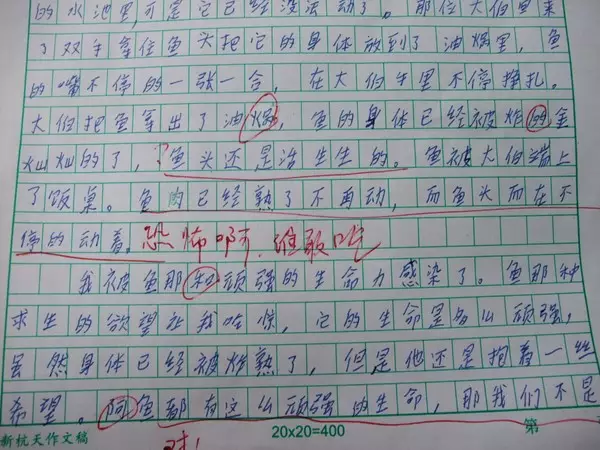 的水池里,可是它已经没法动了。那位大伯里来
了双手拿住鱼头把它的身体放到了油锅里,鱼
的嘴不停的一张一合,在大伯手里不停挣扎。
大伯把鱼拿出了油锅,鱼的身体已经被炸的金
灿灿的了,鱼头还是活生生的。鱼被大伯端上
了饭桌。鱼肉已经熟了不再动,而鱼头而在不
停的动着。恐怖啊,谁敢吃
我被鱼那和顽强的生命力感染了。鱼那种
求生的欲望让我吃惊,它的生命是多么顽强,
虽然身体已经被炸熟了,但是他还是抱着一丝
希望。阿鱼都有这么顽强的生命,那我们不是
新杭天作文稿 20x20=400 第
对!